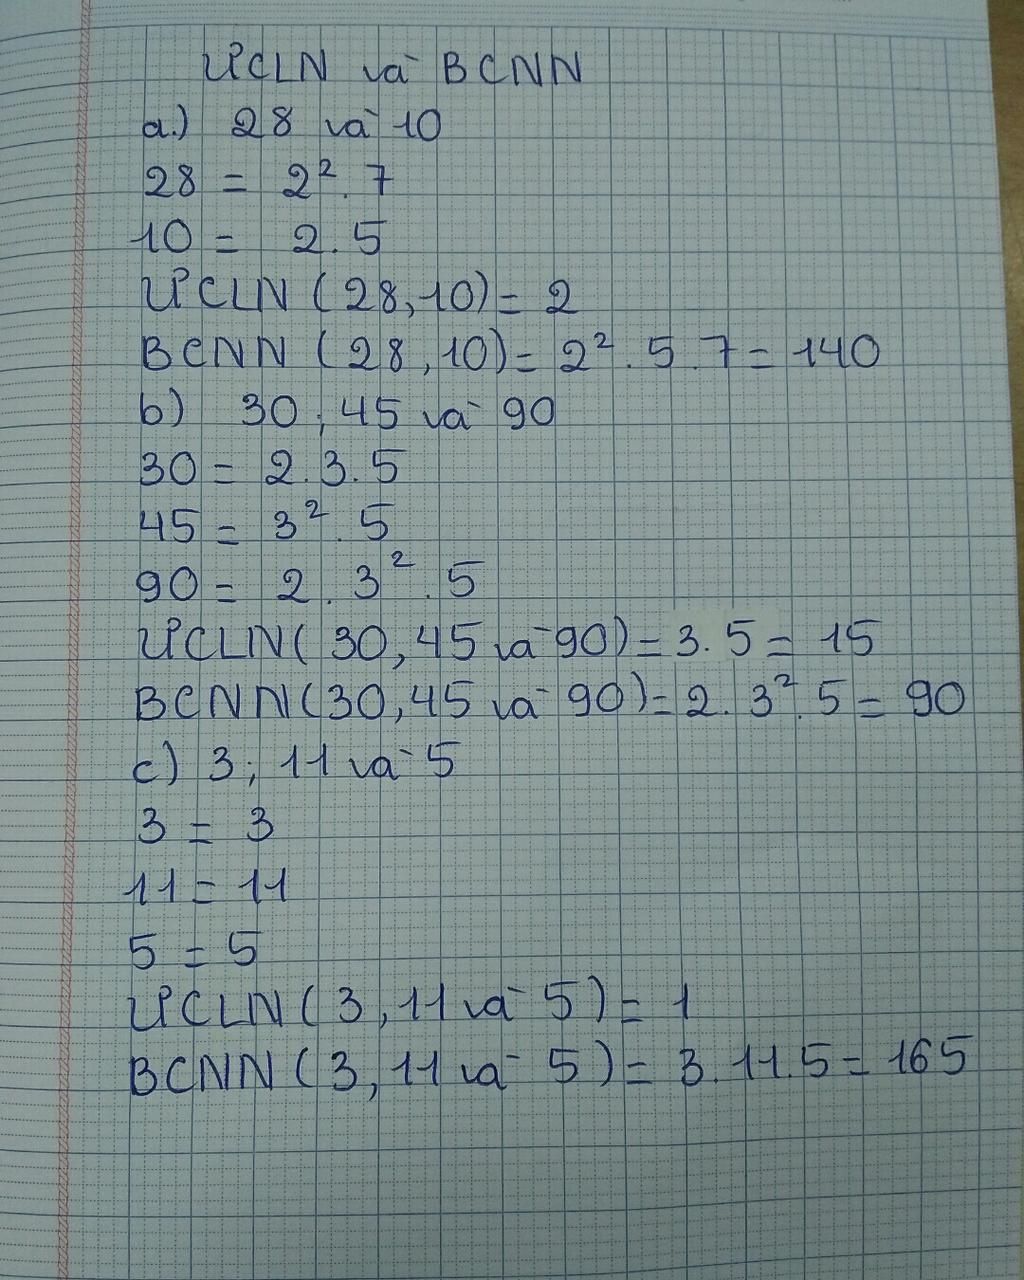 ƯCLN và BCNN
a.) 28 và 10
28 = 2². 7
10 = 2.5
ƯCLN (28,10) = 2
BCNN (28,10) = 2² . 5 . 7 = 140
b) 30 ; 45 và 90
30 = 2.3.5
45 = 3² . 5
90 = 2 . 3² . 5
ƯCLN( 30,45 và 90) = 3. 5 = 15
BCNN(30,45 và 90) = 2. 3². 5 = 90
c) 3; 11 và 5
3 = 3
11 = 11
5 = 5
ƯCLN( 3,11 và 5) = 1
BCNN (3,11 và 5) = 3. 11.5 = 165